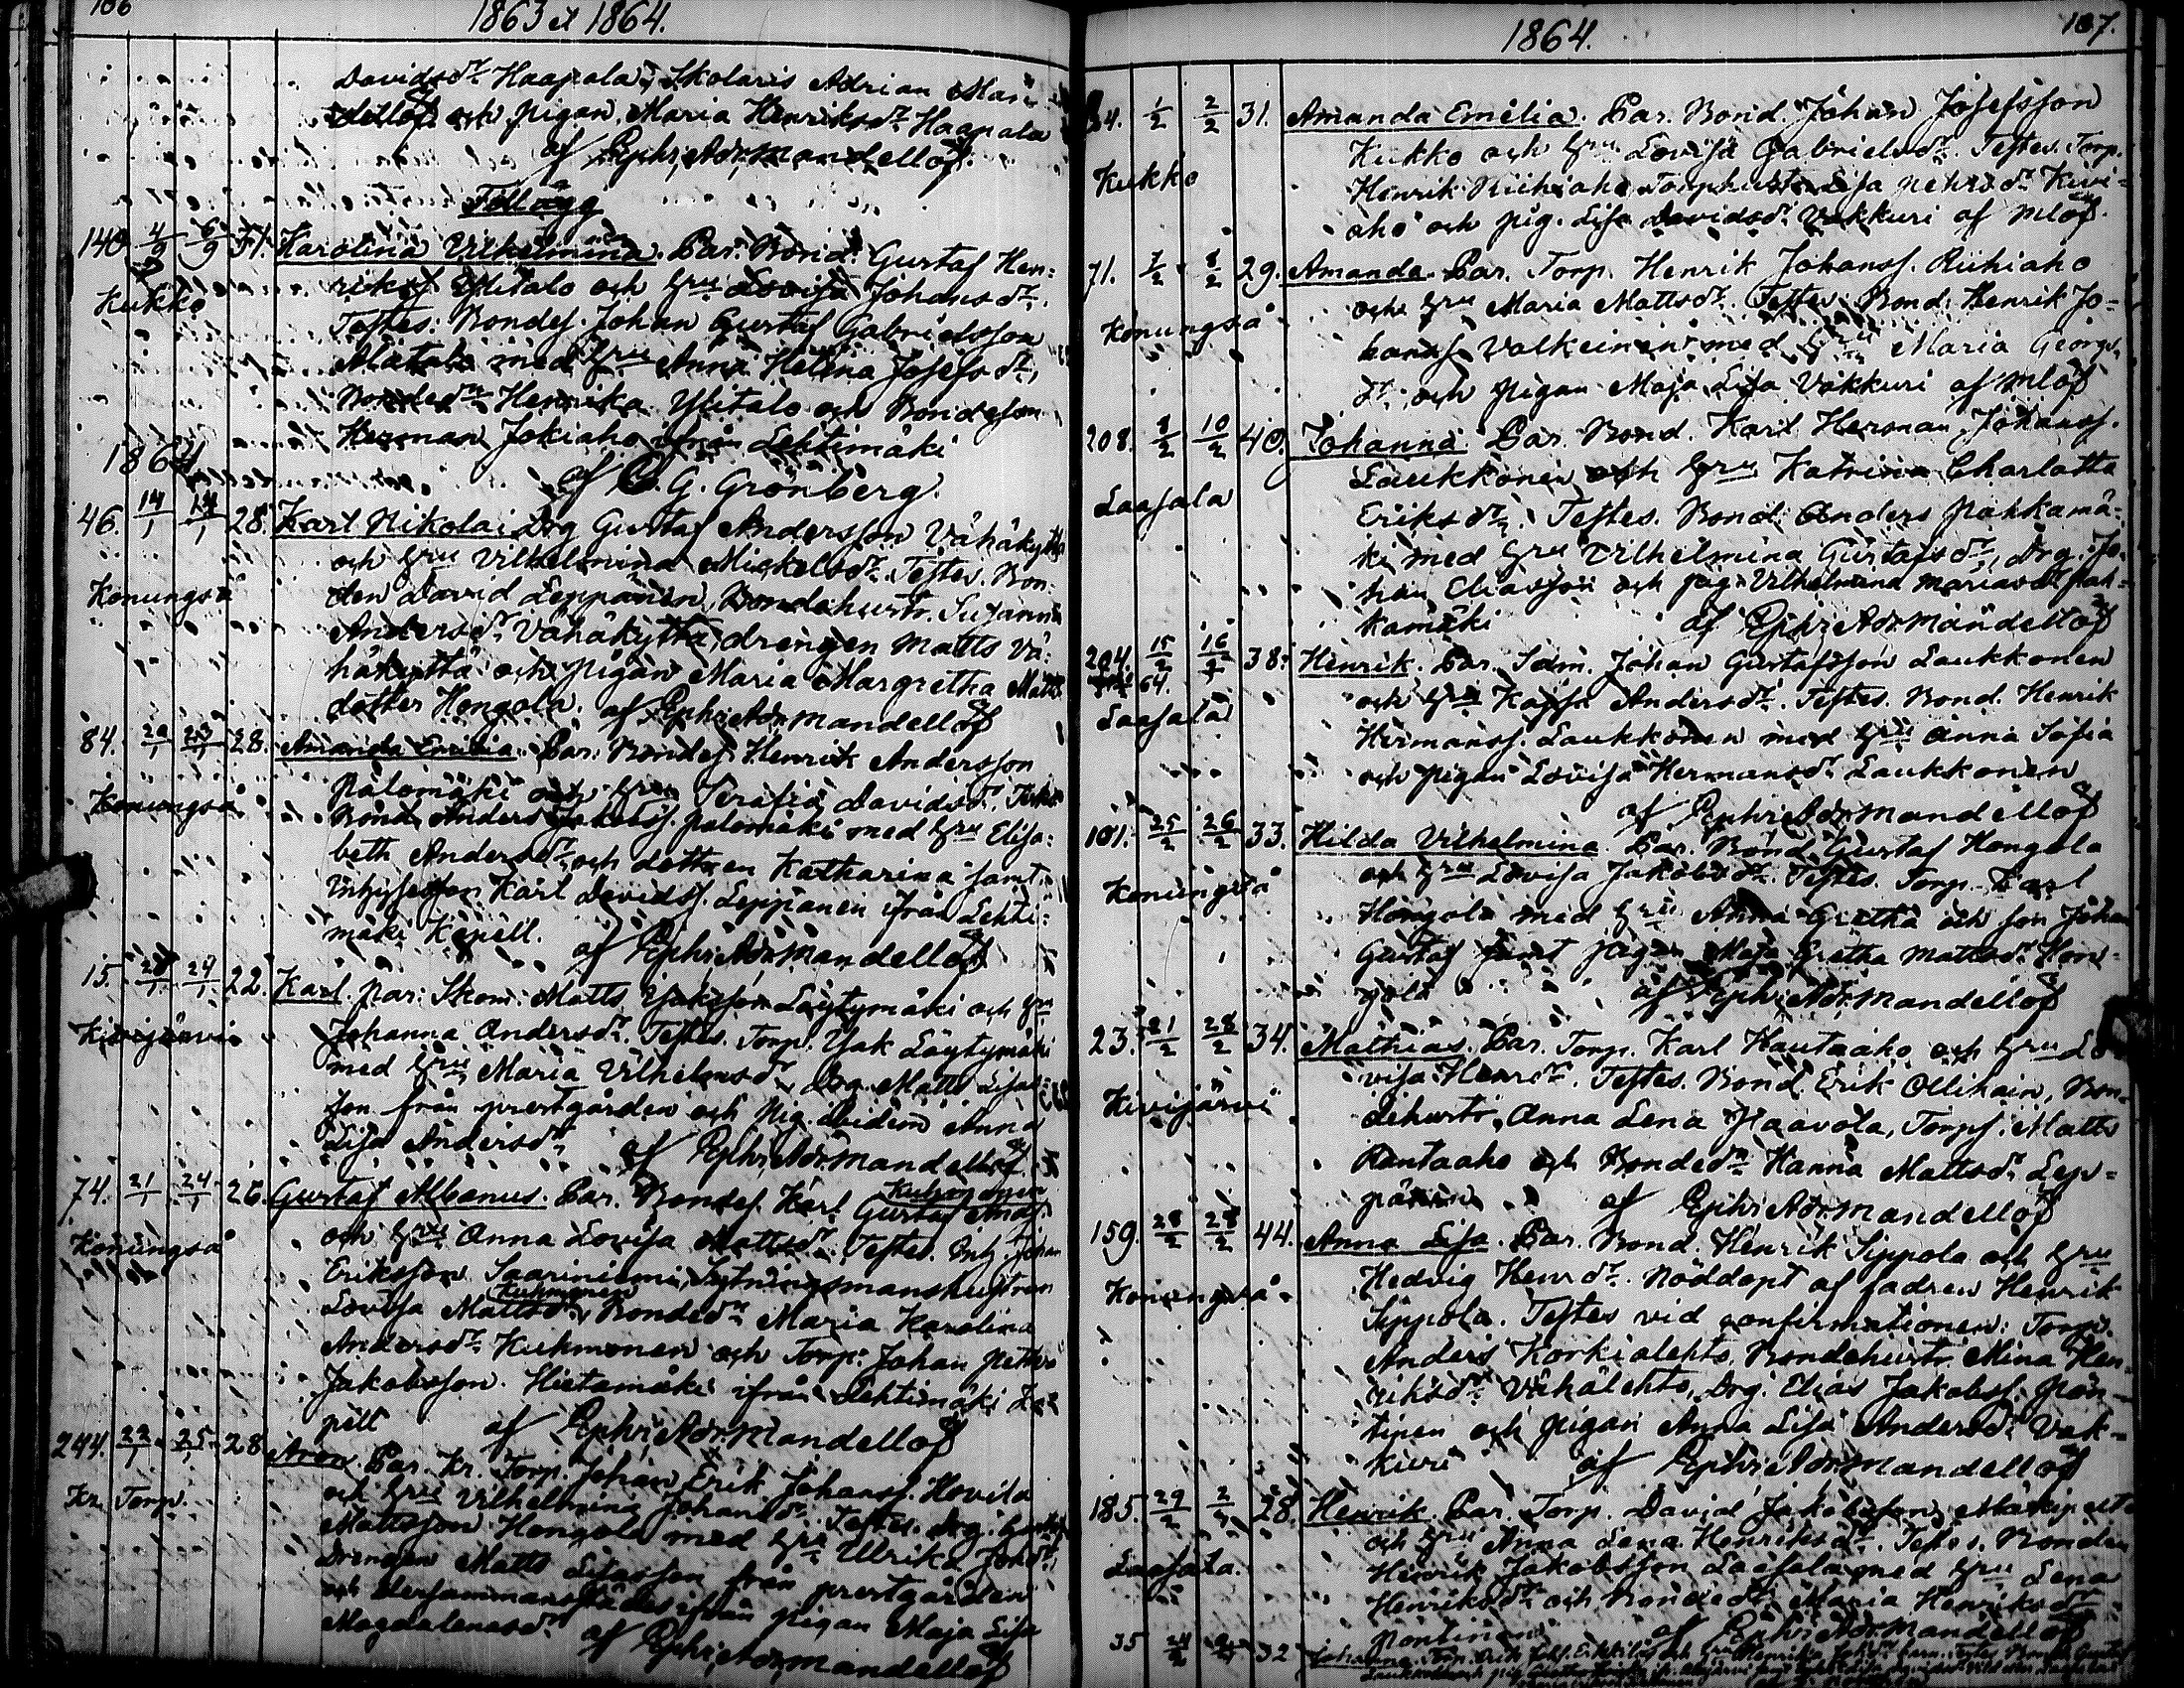 186
1863 et 1864.
Davidsdr Haapala, Skolaris Adrian Man-
dellöf och pigan, Maria Henriksdr Haapala
af Ephr. Adr. Mandellöf.
Tillägg
140. 4/9 6/9 31. Karolina Vilhelmina. Par. Bond. Gustaf Hen-
Kukko
rikss. Ylitalo och hru Lovisa Johansdr.
Testes: Bondes. Johan Gustaf Gabrielsson
Mätälä med hru Anna Helena Josefsdr,
Bondedr Henrika Ylitalo och Bondeson
Herman Jokiaho ifrån Lehtimäki
1864
af C. G. Grönberg.
46. 14/1 14/1 28. Karl Nikolai Drg Gustaf Andersson Vähäkyttä
och hru Vilhelmina Mickelsdr. Testes. Bon-
Konungså
den David Leppänen, Bondehustr. Susanna
Andersdr Vähäkyttä, drengen Matts Vä-
häkyttä och pigan Maria Margretha Matts
dotter Hongola. af Ephr. Adr. Mandellöf
84. 20/1 23/1 28. Amanda Emilia. Par: Bondes. Henrik Andersson
Palomäki och hru Serafia Davidsdr. Testes
Konungså
Bond. Anders Jakobss. Palomäki med hru Elisa-
beth Andersdr och dottren Katharina samt
Inhysesson Karl Davidss. Leppänen ifrån Lehti-
mäki Kapell.
af Ephr. Adr. Mandellöf
15. 21/1 24/1 22. Karl. Par: Skom. Matts Isaksson Löytymäki och hru
Kivijärvi
Johanna Andersdr. Testes. Torp. Isak Löytymäki
med hru Maria Vilhelmsdr, Drg. Matts Lisas-
son från prestgården och Pig. ibidem Anna
Lisa Andersdr af Ephr. Adr. Mandellöf
74. 21/1 24/1 26. Gustaf Albanus. Par. Bondes. Karl Gustaf Ands. Kuhmonen
Konungså
och hru Anna Lovisa Mattsdr. Testes. Inh. Johan
Eriksson Saariniemi, Sytningsmanshustrun
Lovisa Mattsdr Kuhmonen, Bondedr Maria Karolina
Andersdr Kuhmonen och Torp. Johan Petter
Jakobsson Hietamäki ifrån Lehtimäki Ka-
pell af Ephr. Adr. Mandellöf
244. 22/1 25/1 28. Aron Par. Kr. Torp. Johan Erik Johanss. Hovila
Kr. Torp.
och hru Vilhelmina Johansdr. Testes. Drg. Gustaf
Mattsson Hongola med hru Ulrika Johsdr,
Drengen Matts Lisasson från prestgården
och dersammanstädes ifrån pigan Maja Lisa
Magdalenasdr
af Ephr. Adr. Mandellöf
1864.
187.
34. 1/2 2/2 31. Amanda Emelia. Par. Bond. Johan Josefsson
Kukko och hru Lovisa Gabrielsdr. Testes. Torp.
Kukko
Henrik Riihiaho Torphustr. Lisa Petersdr Kivi-
aho och pig. Lisa Davidsdr Vakkuri af Mlöf.
71. 7/2 8/2 29. Amanda. Par. Torp. Henrik Johanss. Riihiaho
och hru Maria Mattsdr. Testes. Bond. Henrik Jo-
Konungså
hanss. Valkeinen med hru Maria Georgs-
dr, och pigan Maja Lisa Vakkuri af Mlöf
208. 8/2 10/2 40. Johanna. Par. Bond. Karl Herman Johanss.
Laukkonen och hru Katrina Charlotta
Laasala
Eriksdr. Testes. Bond. Anders Pahkamä-
ki med hru Vilhelmina Gustafsdr, Drg. Jo-
han Eliasson och pig. Vilhelmina Mariasdr Pah-
kamäki af Ephr. Adr. Mandellöf
204. 15/2 16/2 38. Henrik. Par. Sam. Johan Gustafsson Laukkonen
64.
och hru Kajsa Andersdr. Testes. Bond. Henrik
Laasala
Hermanss. Laukkonen med hru Anna Sofia
och pigan Lovisa Hermansdr Laukkonen
af Ephr. Adr. Mandellöf
101. 25/2 26/2 33. Hilda Vilhelmina. Par. Bond. Gustaf Hongola
och hru Lovisa Jakobsdr. Testes. Torp. Karl
Konungså
Hongola med hru Anna Gretha och son Johan
Gustaf samt pigan Maja Gretha Mattsdr Hon-
gola af Ephr. Adr. Mandellöf
23. 21/2 28/2 34. Mathias. Par. Torp. Karl Hautaaho och hru Lo-
visa Henrdr. Testes. Bond. Erik Ollikain, Bon-
Kivijärvi
dehustr. Anna Lena Paavola, Torps. Matts
Rantaaho och Bondedr Hanna Mattsdr Lep-
pänen af Ephr. Adr. Mandellöf
159. 28/2 28/2 44. Anna Lisa. Par. Bond. Henrik Sippola och hru
Hedvig Henrdr. Nöddöpt af fadren Henrik
Konungså
Sippola. Testes vid confirmationen: Torp.
Anders Korkialehto, Bondehustr. Mina Hen-
riksdr Vähälehto, Drg. Elias Jakobss. Pön-
tinen och pigan Anna Lisa Andersdr Vak-
kuri af Ephr. Adr. Mandellöf
185. 29/2 2/3 28. Henrik. Par. Torp. David Jakobsson Mäkipelto
och hru Anna Lena Henriksdr. Testes. Bonden
Laasala.
Henrik Jakobsson Laasala med hru Lena
Henriksdr och Bondedr Maria Henriksdr
Pöntinen af Ephr. Adr. Mandellöf
35 24/2 32 Johanna.